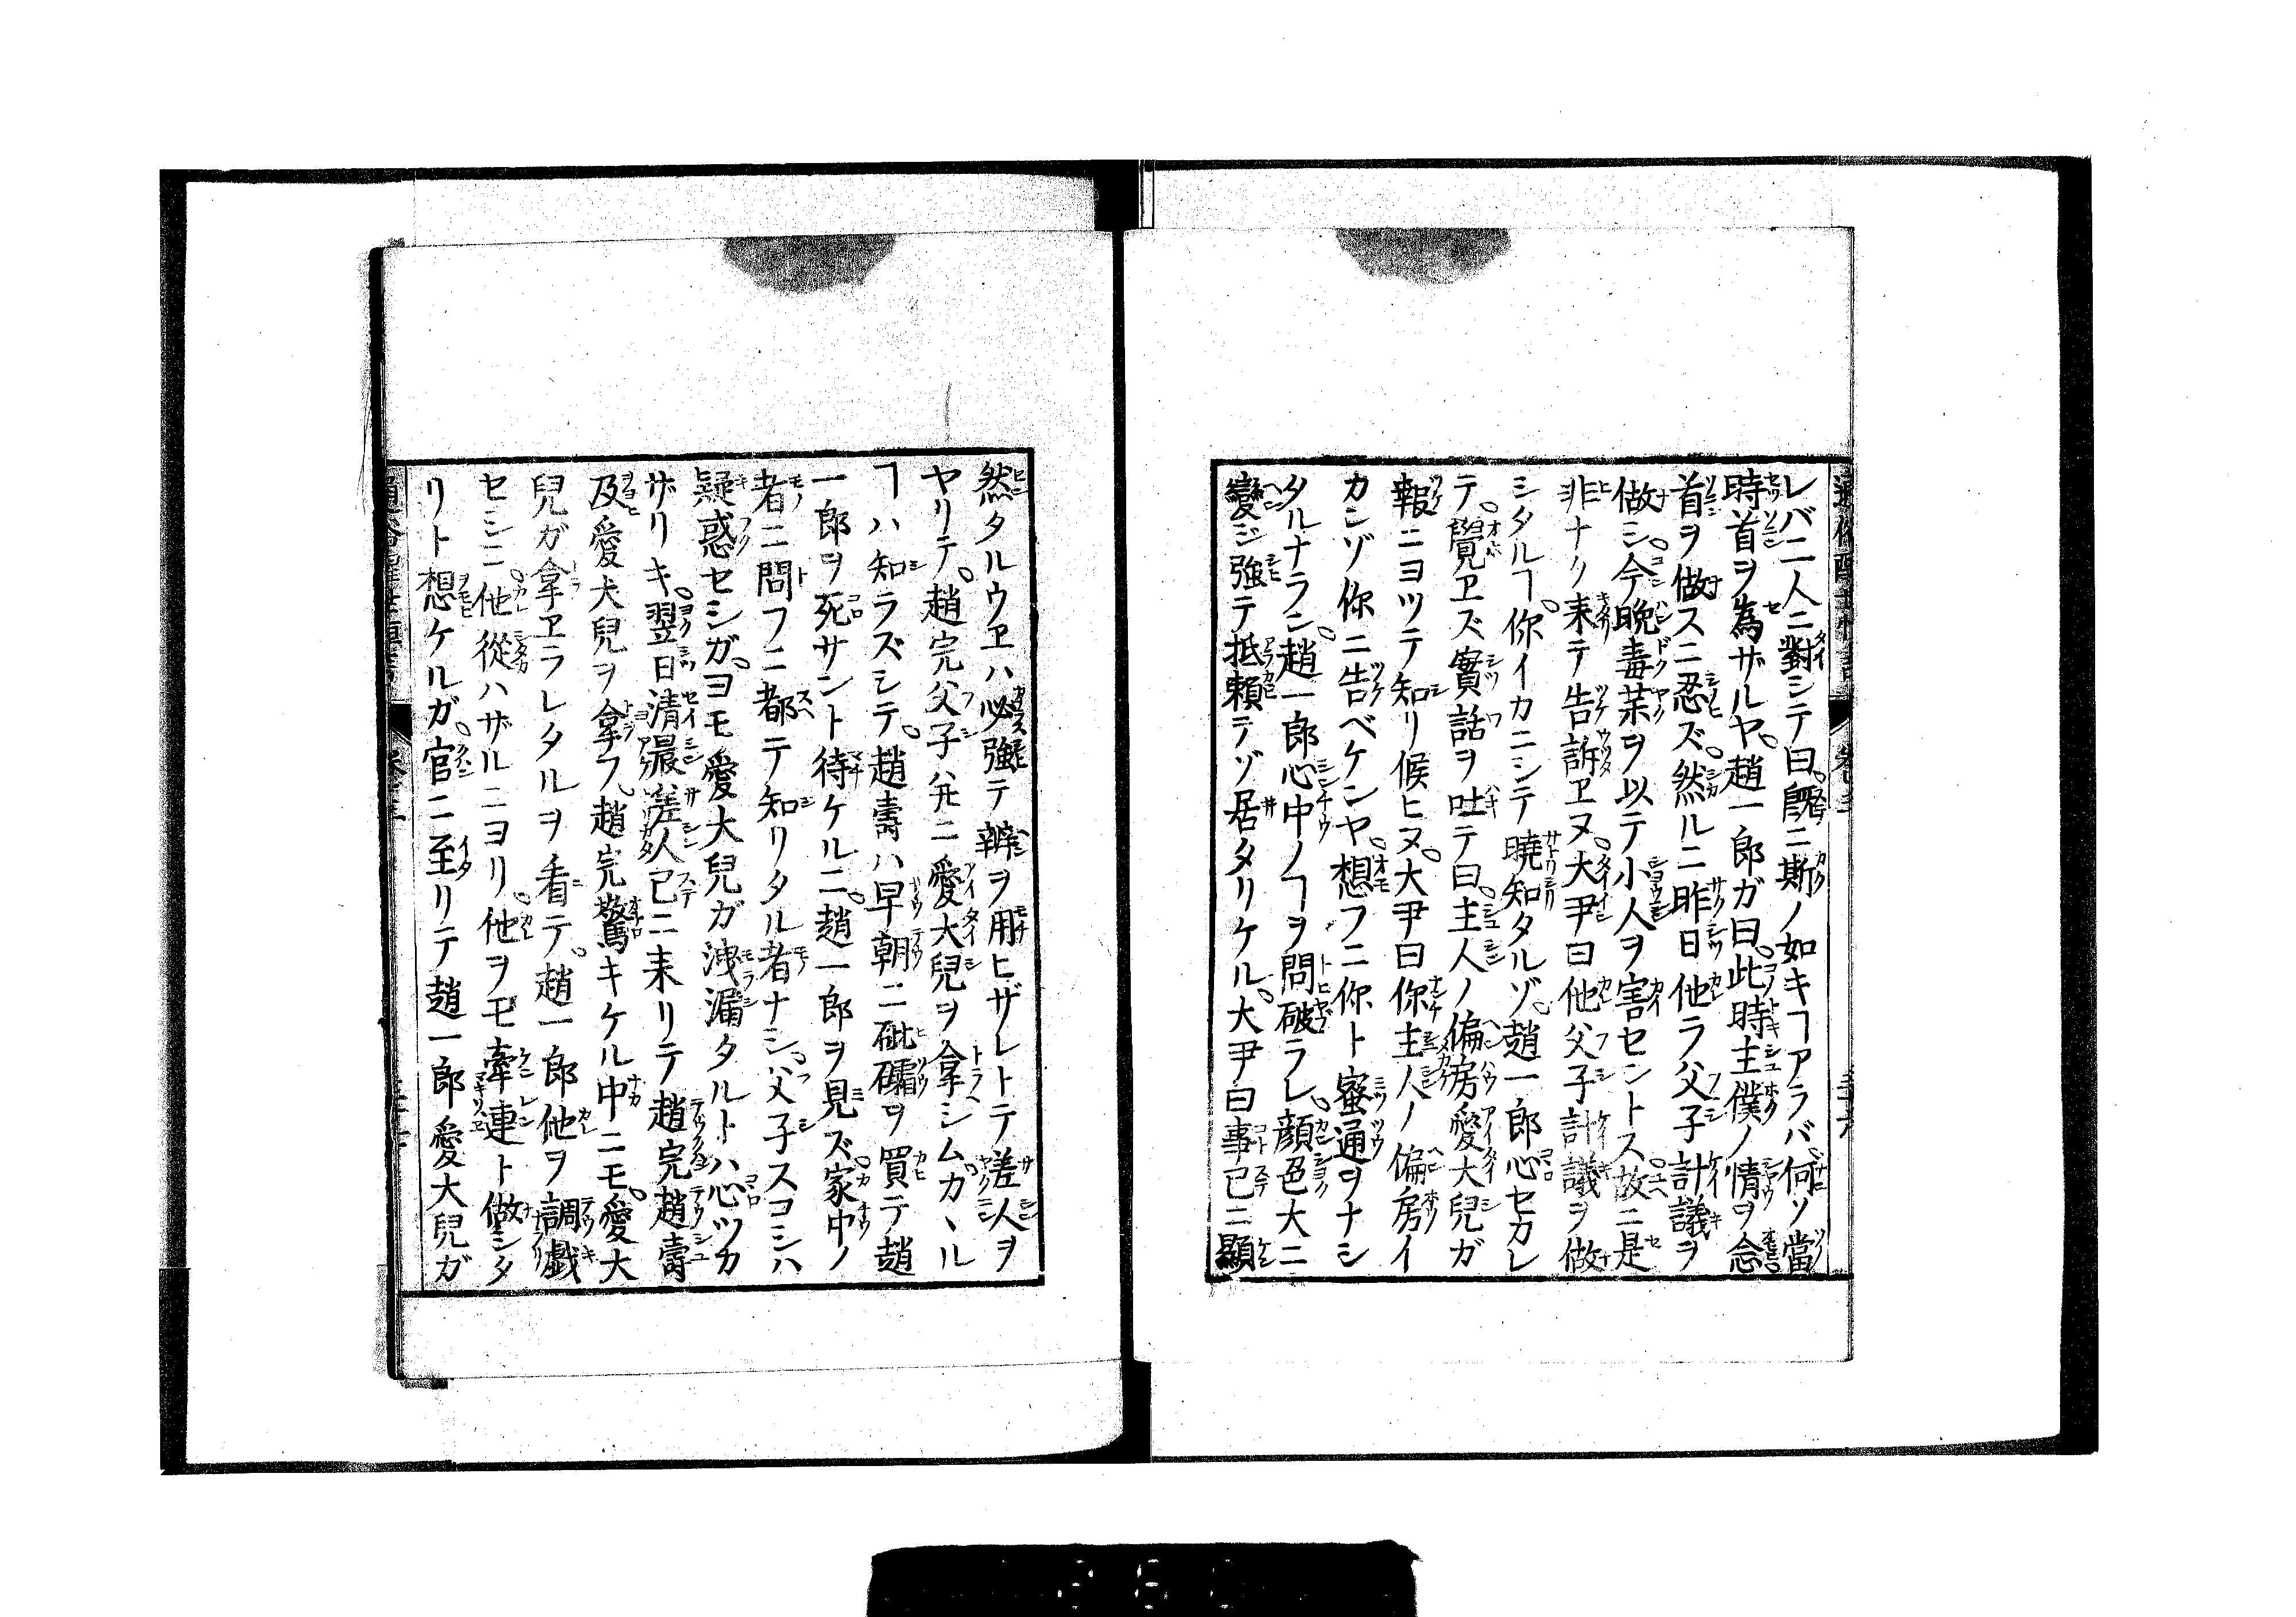 レバ二人ニ對シテ曰。既ニ斯ノ如キヿアラバ。何ソ當
時首ヲ為ザルヤ。趙一郎ガ曰。此時主僕ノ情ヲ念
首ヲ做スニ忍ズ。然ルニ昨日他ラ父子計議ヲ
做シ。今晩毒茶ヲ以テ小人ヲ害セントス。故ニ是
非ナク来テ告訴ヱヌ。大尹曰他父子計議ヲ做
シタルヿ。你イカニシテ暁知タルゾ。趙一郎心セカレ
テ。覺ヱズ實話ヲ吐テ曰。主人ノ偏房愛大兒ガ
報ニヨツテ知リ候ヒヌ。大尹曰你主人ノ偏房イ
カンゾ你ニ告ベケンヤ。想フニ你ト蜜通ヲナシ
タルナラン。趙一郎心中ノヿヲ問破ラレ。顔色大ニ
變ジ強テ抵頼テゾ居タリケル。大尹曰事已ニ顯
然タルウヱハ必強テ辨ヲ用ヒザレトテ差人ヲ
ヤリテ。趙完父子ハ𠀋ニ愛大兒ヲ拿シム。カヽル
ヿハ知ラズシテ。趙壽ハ早朝ニ砒礵ヲ買テ趙
一郎ヲ死サント待ケルニ。趙一郎ヲ見ズ。家中ノ
者ニ問フニ都テ知リタル者ナシ。父子スコシハ
疑惑セシガ。ヨモ愛大兒ガ洩漏タルトハ心ツカ
ザリキ。翌日清晨差人已ニ来リテ趙完趙壽
及愛大兒ヲ拿フ。趙完驚キケル中ニモ。愛大
兒ガ拿ヱラレタルヲ看テ。趙一郎他ヲ調戯
セシニ。他從ハザルニヨリ。他ヲモ牽連ト做シタ
リト想ケルガ。官ニ至リテ趙一郎愛大兒ガ